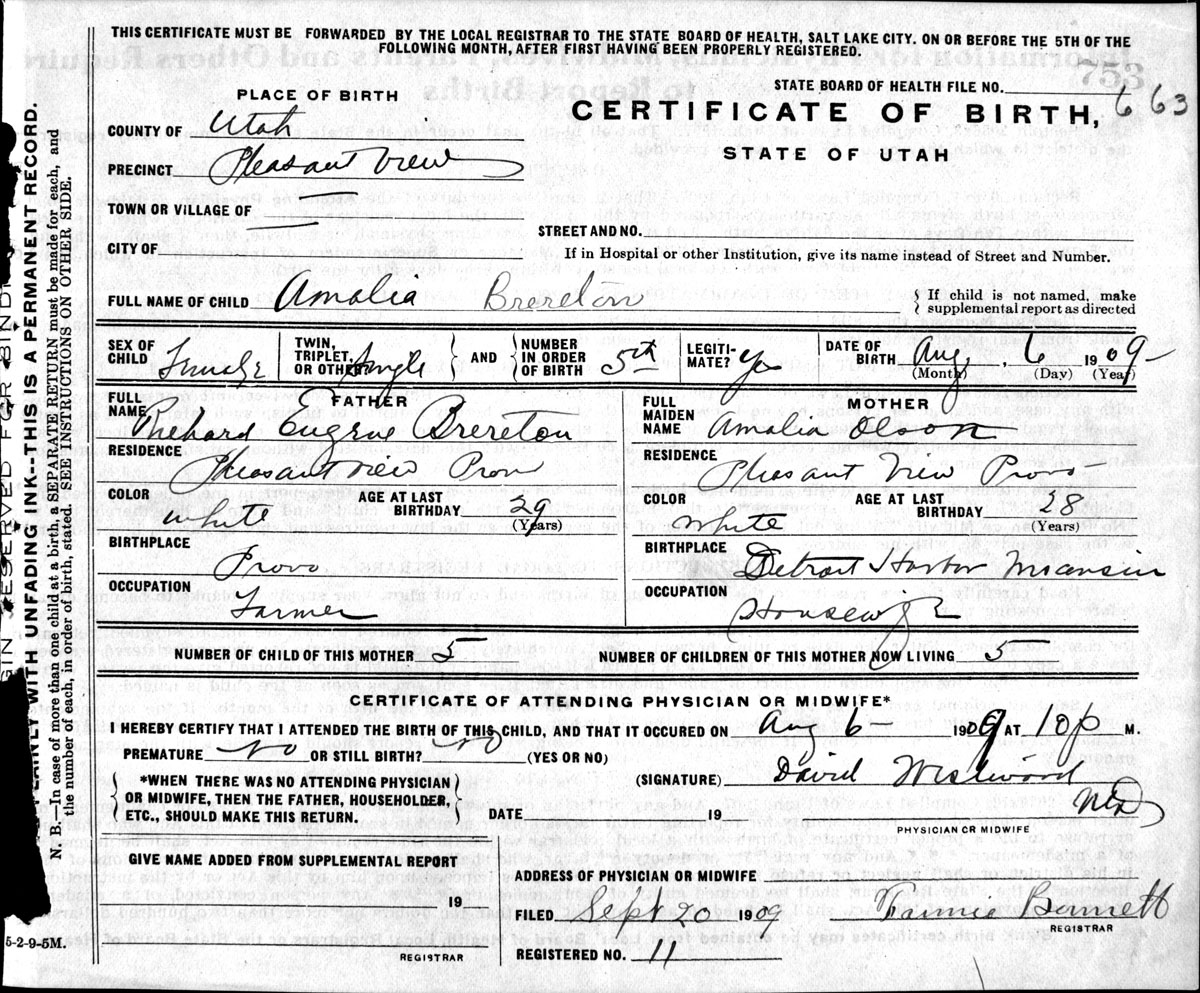 THIS CERTIFICATE MUST BE FORWARDED BY THE LOCAL REGISTRAR TO THE STATE BOARD OF HEALTH, SALT LAKE CITY. ON OR BEFORE THE 5TH OF THE
FOLLOWING MONTH, AFTER FIRST HAVING BEEN PROPERLY REGISTERED.
STATE BOARD OF HEALTH FILE NO. 663
PLACE OF BIRTH
CERTIFICATE OF BIRTH,
STATE OF UTAH
COUNTY OF Utah
PRECINCT Pleasant View
TOWN OR VILLAGE OF
STREET AND NO.
CITY OF
If in Hospital or other Institution, give its name instead of Street and Number.
FULL NAME OF CHILD Amalia Brereton
If child is not named, make
supplemental report as directed
SEX OF CHILD Female
TWIN, TRIPLET, OR OTHER Single
AND
NUMBER IN ORDER OF BIRTH 5th
LEGITI-MATE? Yes
DATE OF BIRTH Aug 6 1909
(Month) (Day) (Year)
FATHER
FULL NAME Richard Eugene Brereton
RESIDENCE Pleasant View Provo
COLOR White
AGE AT LAST BIRTHDAY 29
(Years)
BIRTHPLACE Provo
OCCUPATION Farmer
MOTHER
FULL MAIDEN NAME Amalia Olson
RESIDENCE Pleasant View Provo
COLOR White
AGE AT LAST BIRTHDAY 28
(Years)
BIRTHPLACE Detroit Harbor
OCCUPATION Housewife
NUMBER OF CHILD OF THIS MOTHER 5
NUMBER OF CHILDREN OF THIS MOTHER NOW LIVING 5
CERTIFICATE OF ATTENDING PHYSICIAN OR MIDWIFE*
I HEREBY CERTIFY THAT I ATTENDED THE BIRTH OF THIS CHILD, AND THAT IT OCCURED ON Aug 6 1909 AT 10 p M.
PREMATURE No OR STILL BIRTH? No (YES OR NO)
(SIGNATURE) David Westwood
MD
*WHEN THERE WAS NO ATTENDING PHYSICIAN
OR MIDWIFE, THEN THE FATHER, HOUSEHOLDER,
ETC., SHOULD MAKE THIS RETURN.
DATE 19
PHYSICIAN OR MIDWIFE
GIVE NAME ADDED FROM SUPPLEMENTAL REPORT
19
REGISTRAR
ADDRESS OF PHYSICIAN OR MIDWIFE
FILED Sept 20 1909 Fannie Barnett
REGISTRAR
REGISTERED NO. 11
5-2-9-5M.
PLAINLY WITH UNFADING INK--THIS IS A PERMANENT RECORD.
N. B.—In case of more than one child at a birth, a SEPARATE RETURN must be made for each, and
the number of each, in order of birth, stated. SEE INSTRUCTIONS ON OTHER SIDE.